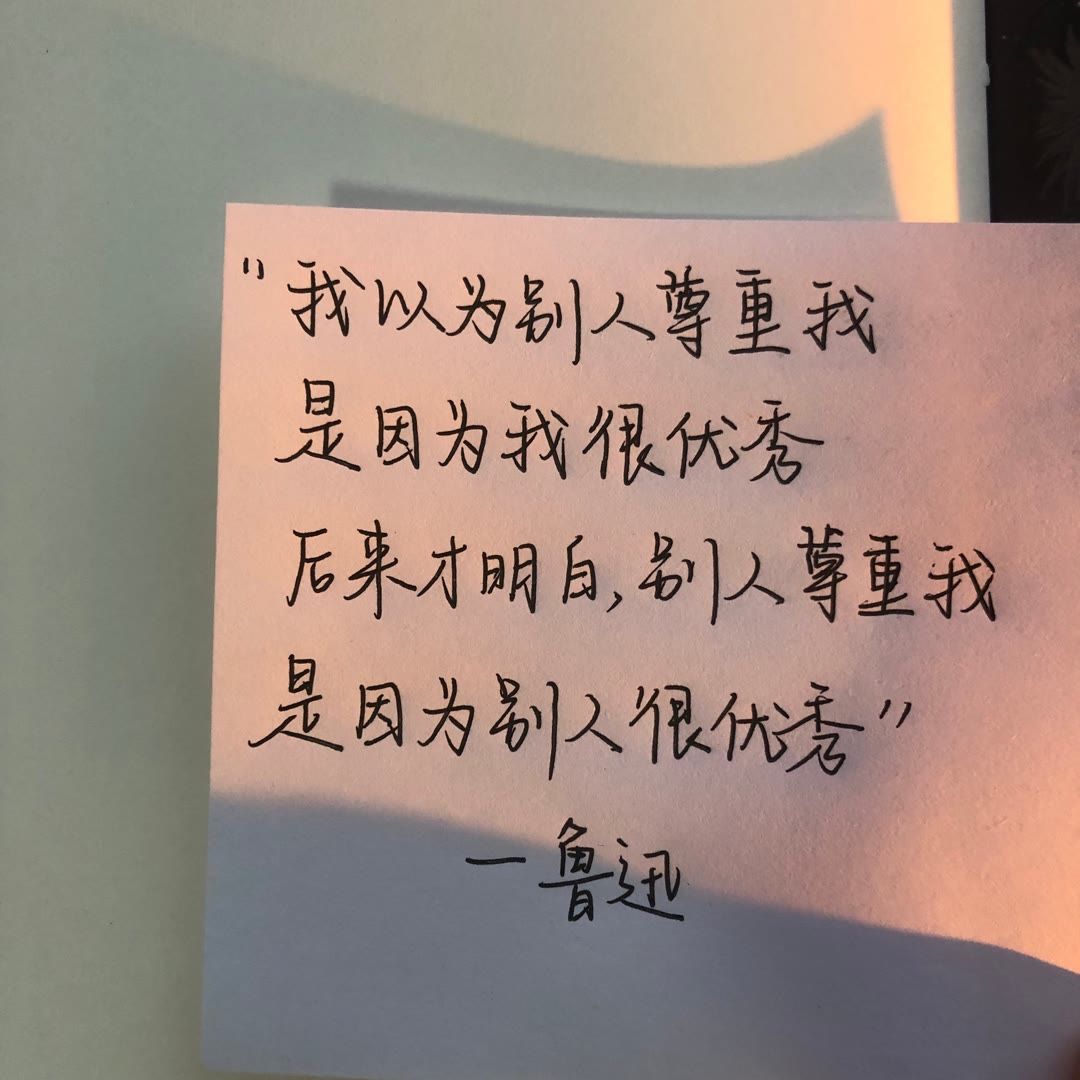 "我以为别人尊重我
是因为我很优秀
后来才明白,别人尊重我
是因为别人很优秀"
—鲁迅